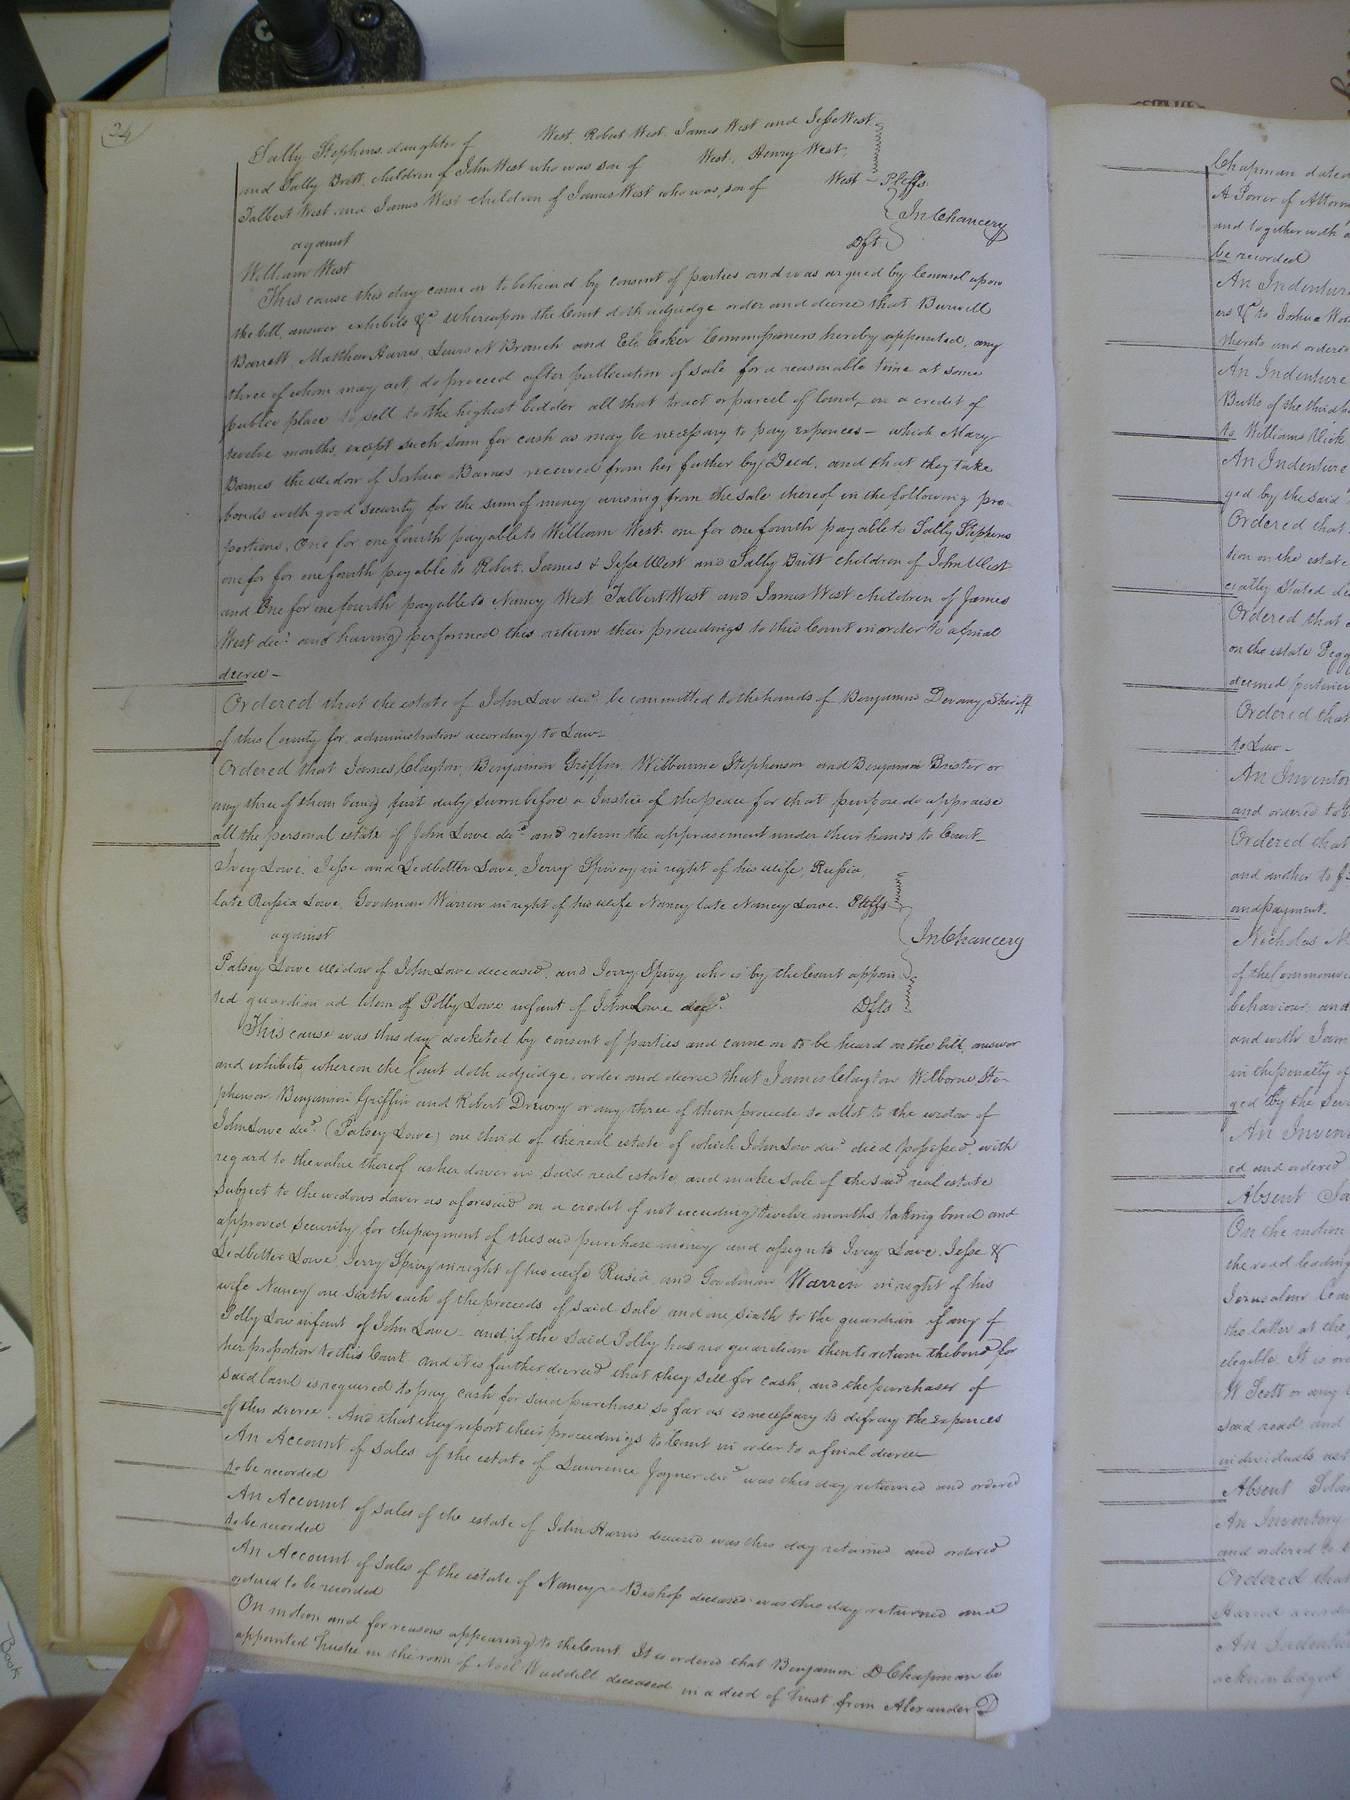 34
Sally Stephens daughter of West, Robert West, James West and Jesse West
and Sally Britt children of John West who was son of West, Henry West,
Talbert West and James West children of James West who was son of West Pltffs
In Chancery
against
William West Dft
This cause this day came on to be heard by consent of parties and was argued by Counsel upon
the bill, answer exhibits &c whereupon the Court doth adjudge order and decree that Burwell
Barrett Matthew Harris, Lewis N Branch and Eli Coker Commissioners hereby appointed, any
three of whom may act, do proceed after publication of sale for a reasonable time at some
public place to sell to the highest bidder all that tract or parcel of land, on a credit of
twelve months, except such sum for cash as may be necessary to pay expences — which Mary
Barnes the widow of Joshua Barnes received from her father by Deed, and that they take
bonds with good security for the sum of money arising from the sale thereof in the following pro-
portions, One for one fourth payable to William West, one for one fourth payable to Sally Stephens
one for for one fourth payable to Robert, James & Jesse West and Sally Britt children of John West
and One for one fourth payable to Nancy West, Talbert West and James West children of James
West decd. and having performed this return their proceedings to this Court in order to a final
decree —
Ordered that the estate of John Low decd. be committed to the hands of Benjamin Devany Sheriff
of this County for administration according to Law —
Ordered that James Clayton, Benjamin Griffin, Wilbourne Stephenson and Benjamin Brister or
any three of them being first duly sworn before a Justice of the peace for that purpose do appraise
all the personal estate of John Lowe decd. and return the appraisement under their hands to Court —
Ivey Lowe, Jesse and Ledbetter Lowe, Jerry Spivey in right of his wife, Russia,
late Russia Lowe, Goodman Warren in right of his wife Nancy late Nancy Lowe. Pltffs
against
In Chancery
Patsey Lowe widow of John Lowe deceased, and Jerry Spivy who is by the Court appoin
ted guardian ad litem of Polly Lowe infant of John Lowe decd. Dfts
This cause was this day docketed by consent of parties and came on to be heard on the bill, answer
and exhibits, whereon the Court doth adjudge, order and decree that James Clayton Wilborne Ste-
phenson, Benjamin Griffin and Robert Drewry or any three of them proceede so allot to the widow of
John Lowe decd. (Patsey Lowe) one third of the real estate of which John Low decd. died possessed, with
regard to the value thereof as her dower in said real estate and make sale of the said real estate
subject to the widows dower as aforesaid on a credit of not exceeding twelve months taking bond and
approved security for the payment of the said purchase money and assign to Ivey Lowe, Jesse &
Ledbetter Lowe, Jerry Spivy in right of his wife Rusia, and Goodman Warren in right of his
wife Nancy one sixth each of the proceeds of said sale and one sixth to the guardian if any of
Polly Low infant of John Lowe — and if the said Polly has no guardian then to return the bond for
her proportion to this Court. and it is further decreed that they sell for cash, and the purchaser of
said land is required to pay cash for said purchase so far as is necessary to defray the expences
of this decree. And that they report their proceedings to Court in order to a final decree
An Account of sales of the estate of Lawrence Joyner decd. was this day returned and ordered
to be recorded
An Account of sales of the estate of John Harris deceased was this day returned and ordered
to be recorded
An Account of sales of the estate of Nancy Bishop deceased was this day returned and
ordered to be recorded
On motion and for reasons appearing to the Court It is ordered that Benjamin D Chapman be
appointed trustee in the room of Noel Waddill deceased in a deed of trust from Alexander D
Chapman dated
A Power of Attorn
and together with
be recorded
An Indenture
ers & to Joshua
thereto and ordered
An Indenture
Butts of the third
to Williams
An Indenture
ged by the said
Ordered that
tion on the estate
cially stated
Ordered that
on the estate Pegg
deemed
Ordered that
to Law —
An Inventor
and ordered to
Ordered that
and another to
and payment.
Nicholas M
of the Commonwe
behaviour and
and with Jam
in the penalty of
ged by the
An Inven
ed and ordered
Absent
On the motion
the road leading
Jerusalem
the latter at the
elegible. It is or
W Scott or any
said road and
individuals
Absent
An Inventory
and ordered to
Ordered that
An Indentu
acknowledged
Book